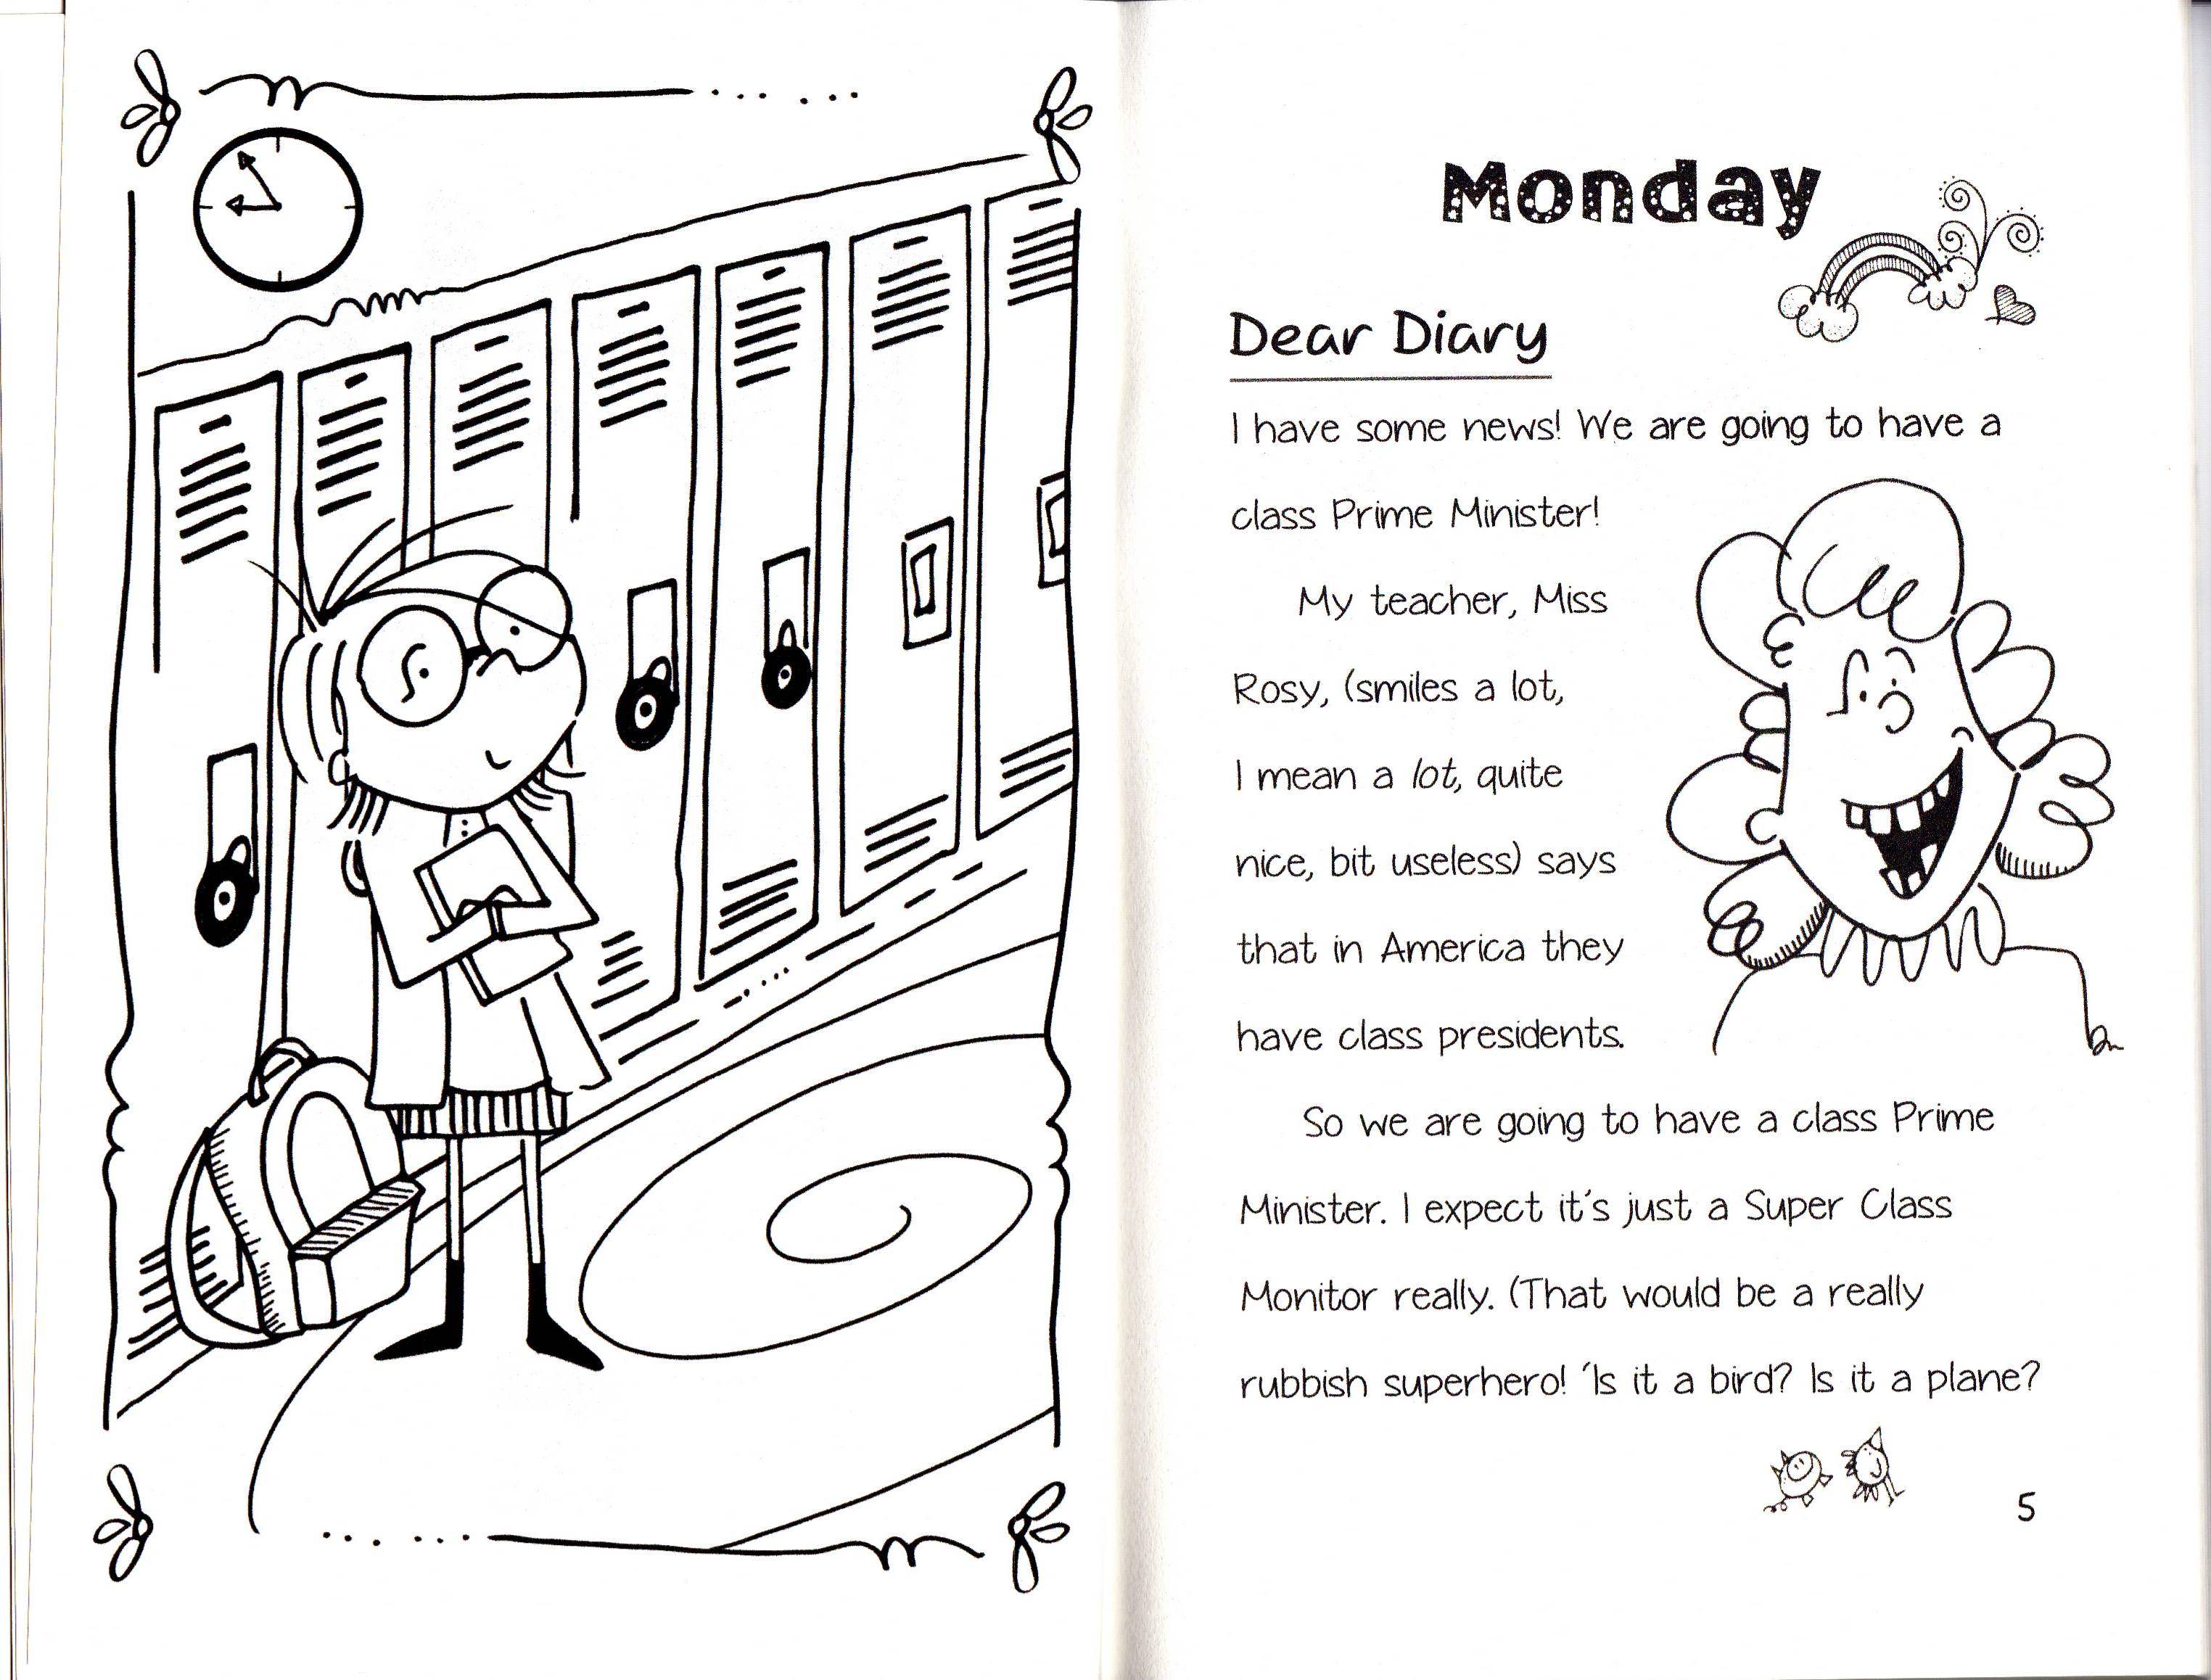 Monday
Dear Diary
I have some news! We are going to have a
class Prime Minister!
My teacher, Miss
Rosy, (smiles a lot,
I mean a lot, quite
nice, bit useless) says
that in America they
have class presidents.
So we are going to have a class Prime
Minister. I expect it's just a Super Class
Monitor really. (That would be a really
rubbish superhero! 'Is it a bird? Is it a plane?
5